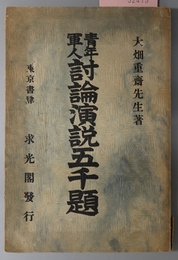 大畑重齋先生著
青年
軍人
討論演説五千題
東京書肆
求光閣發行